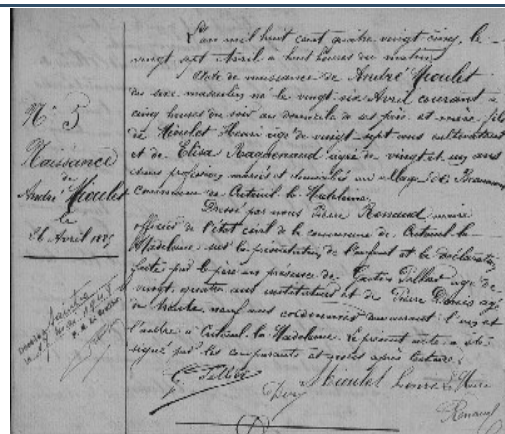 N° 5
Naissance
de
André Mioulet
le
26 Avril 1885
L'an mil huit cent quatre vingt cinq, le
vingt sept Avril à huit heures du matin
Acte de naissance de André Mioulet
du sexe masculin né le vingt six Avril courant à
cinq heures du soir au domicile de ses père et mère, fils
de Mioulet Henri âgé de vingt-sept ans cultivateur
et de Elisa Ragnenaud agée de vingt et un ans
sans profession, mariés et domiciliés au village de
commune de Creteuil la Madeleine.
Dressé par nous Pierre Renaud maire
officier de l'état civil de la commune de Creteuil la
Madeleine sur la présentation de l'enfant et la déclaration
faite par le père en présence de Gaston Tellier age de
vingt quatre ans instituteur et de Pierre Denis agé
de trente neuf ans cordonnier demeurant l'un et
l'autre à Creteuil la Madeleine. Le présent acte a été
signé par les comparants et nous après lecture.
G. Tellier
Mioulet
Le Maire
Renaud